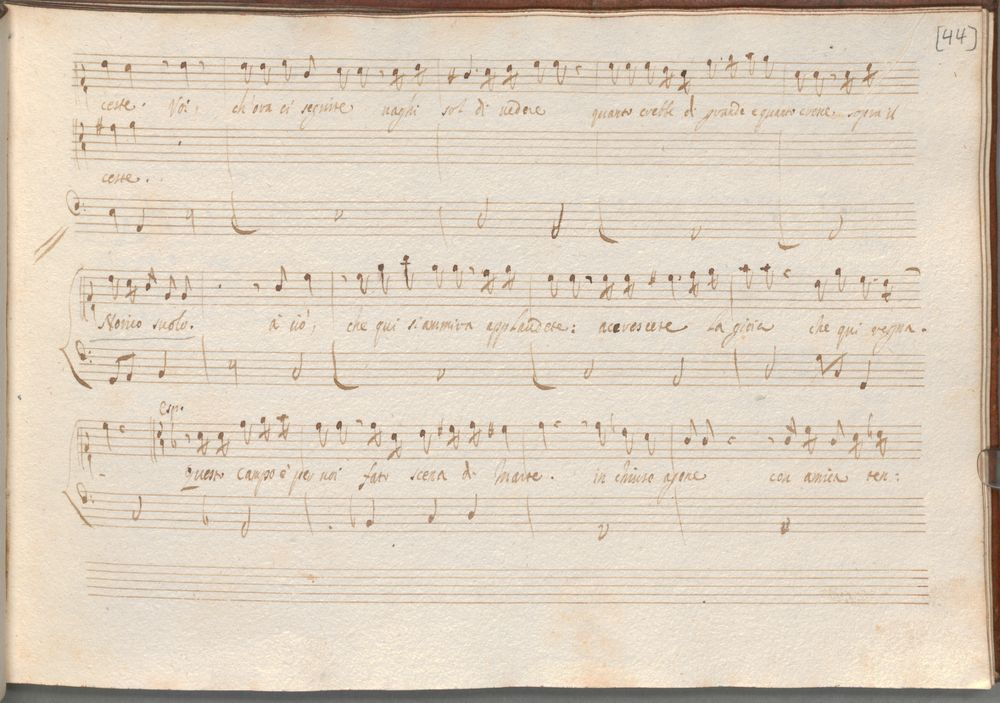 [44]
ceste. Voi, ch'ora ci seguite vaghi sol di vedere quanto crebbe di grande e quanto sopra il
ceste.
Norico suolo. a ciò, che qui s'ammira applaudete: accrescete la gioia che qui regna.
Esp.
Questo campo è per noi fatto scena di Marte. in chiuso agone con amica ten: